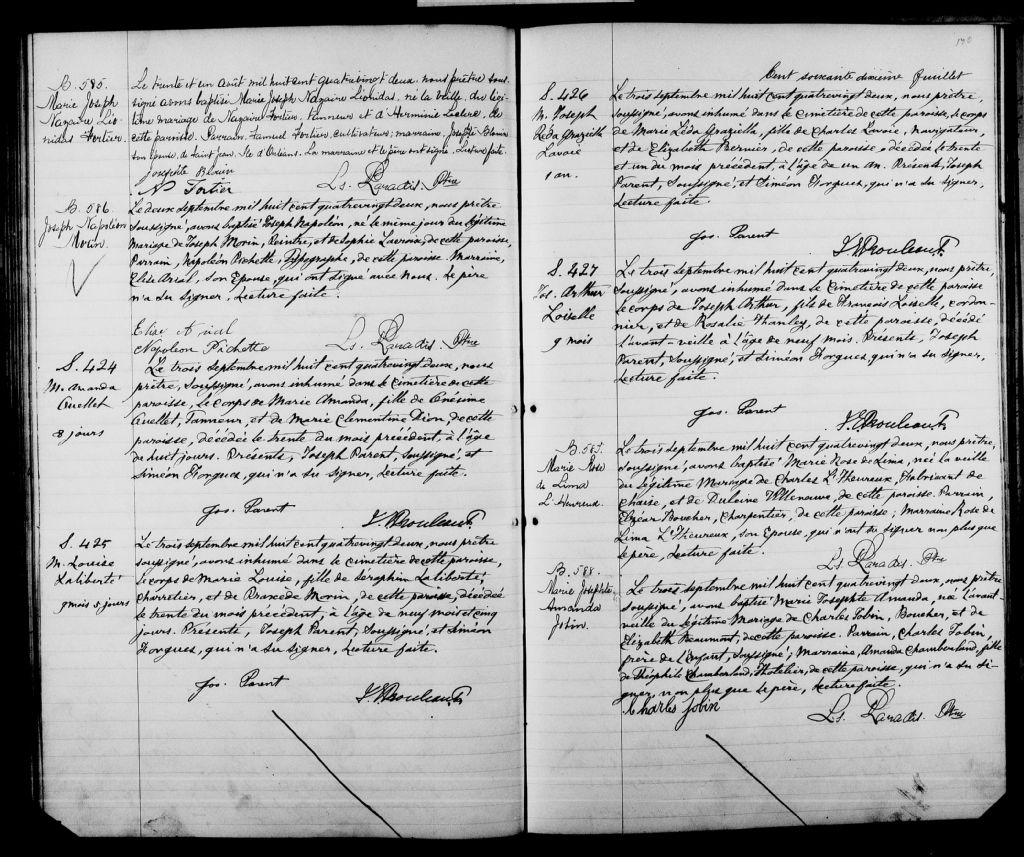 B. 585.
Marie Joseph
Nazaire Léo
nidas Fortier.
Le trente et un Août mil huit cent quatrevingt deux, nous prêtre sous-
signé avons baptisé Marie Joseph Nazaire Léonidas, né la veille, du légi-
time mariage de Nazaire Fortier, tanneur et d'Herminie Leclerc, de
cette paroisse. Parrain, Samuel Fortier, cultivateur; marraine, Josephte Blouin
son épouse, de Saint Jean, Ile d'Orléans. La marraine et le père ont signé, Lecture faite.
Josephte Blouin
N Fortier
Ls. Paradis. Ptre
B. 586.
Joseph Napoléon
Morin.
Le deux septembre mil huit cent quatrevingt deux, nous prêtre
soussigné, avons baptisé Joseph Napoléon, né le même jour du légitime
Mariage de Joseph Morin, Peintre, et de Sophie Lacroix, de cette paroisse,
Parrain, Napoléon Pichette, Typographe, de cette paroisse. Marraine,
Elise Arial, son Epouse, qui ont signé avec nous. Le père
n'a su signer, Lecture faite.
Elise Arial
Napoleon Pichette
Ls. Paradis. Ptre
S. 424
M. Amanda
Ouellet
8 jours
Le trois septembre mil huit cent quatrevingt deux, nous
prêtre, soussigné, avons inhumé dans le cimetière de cette
paroisse, le corps de Marie Amanda, fille de Onésime
Ouellet, Tanneur, et de Marie Clementine Dion, de cette
paroisse, décédée le trente du mois précédent, à l'âge
de huit jours. Présents, Joseph Parent, soussigné, et
Siméon Forgues, qui n'a su signer, Lecture faite.
Jos. Parent
S. 425
M. Louise
Laliberté
9 mois 5 jours
Le trois septembre mil huit cent quatrevingt deux, nous prêtre
soussigné, avons inhumé dans le cimetière de cette paroisse,
le corps de Marie Louise, fille de Séraphin Laliberté,
charretier, et de Morin, de cette paroisse, décédée
le trente du mois précédent, à l'âge de neuf mois et cinq
jours. Présents, Joseph Parent, soussigné, et Siméon
Forgues, qui n'a su signer, Lecture faite.
Jos. Parent
Cent soixante dixième feuillet
S. 426
M. Joseph
Léda Graziella
Lavoie
1 an.
Le trois septembre mil huit cent quatrevingt deux, nous prêtre,
soussigné, avons inhumé dans le cimetière de cette paroisse, le corps
de Marie Léda Graziella, fille de Charles Lavoie, navigateur,
et de Elizabeth Bernier, de cette paroisse, décédée le trente
et un du mois précédent à l'âge de un an. Présents, Joseph
Parent, soussigné, et Siméon Forgues, qui n'a su signer,
Lecture faite.
Jos. Parent
S. 427
Jos. Arthur
Loiselle
9 mois
Le trois septembre mil huit cent quatrevingt deux, nous prêtre,
soussigné, avons inhumé dans le cimetière de cette paroisse
le corps de Joseph Arthur, fils de François Loiselle, cordon-
nier, et de Rosalie, de cette paroisse, décédé
l'avant-veille à l'âge de neuf mois. Présents, Joseph
Parent, soussigné, et Siméon Forgues qui n'a su signer,
Lecture faite.
Jos. Parent
Marie Rose
de Lima
L'Heureux.
Le trois septembre mil huit cent quatrevingt deux, nous prêtre,
soussigné, avons baptisé Marie Rose de Lima, née la veille
du légitime Mariage de Charles L'Heureux, Fabricant de
chaise, et de Villeneuve, de cette paroisse. Parrain,
Elzéar Boucher, Charpentier, de cette paroisse; Marraine, Rose de
Lima L'Heureux, son Epouse, qui n'ont su signer non plus que
le père, Lecture faite.
Ls. Paradis Ptre
B. 588.
Marie Josephte
Amanda
Jobin.
Le trois septembre mil huit cent quatrevingt deux, nous prêtre
soussigné, avons baptisé Marie Josephte Amanda, née l'avant-
veille du légitime Mariage de Charles Jobin, Boucher, et de
Elizabeth Beaumont, de cette paroisse. Parrain, Charles Jobin,
frère de l'enfant, soussigné; Marraine, Amanda Chamberland, fille
de Théophile Chamberland, Hotelier, de cette paroisse, qui n'a su si-
gner, non plus que le père, Lecture faite.
Charles Jobin
Ls. Paradis. Ptre